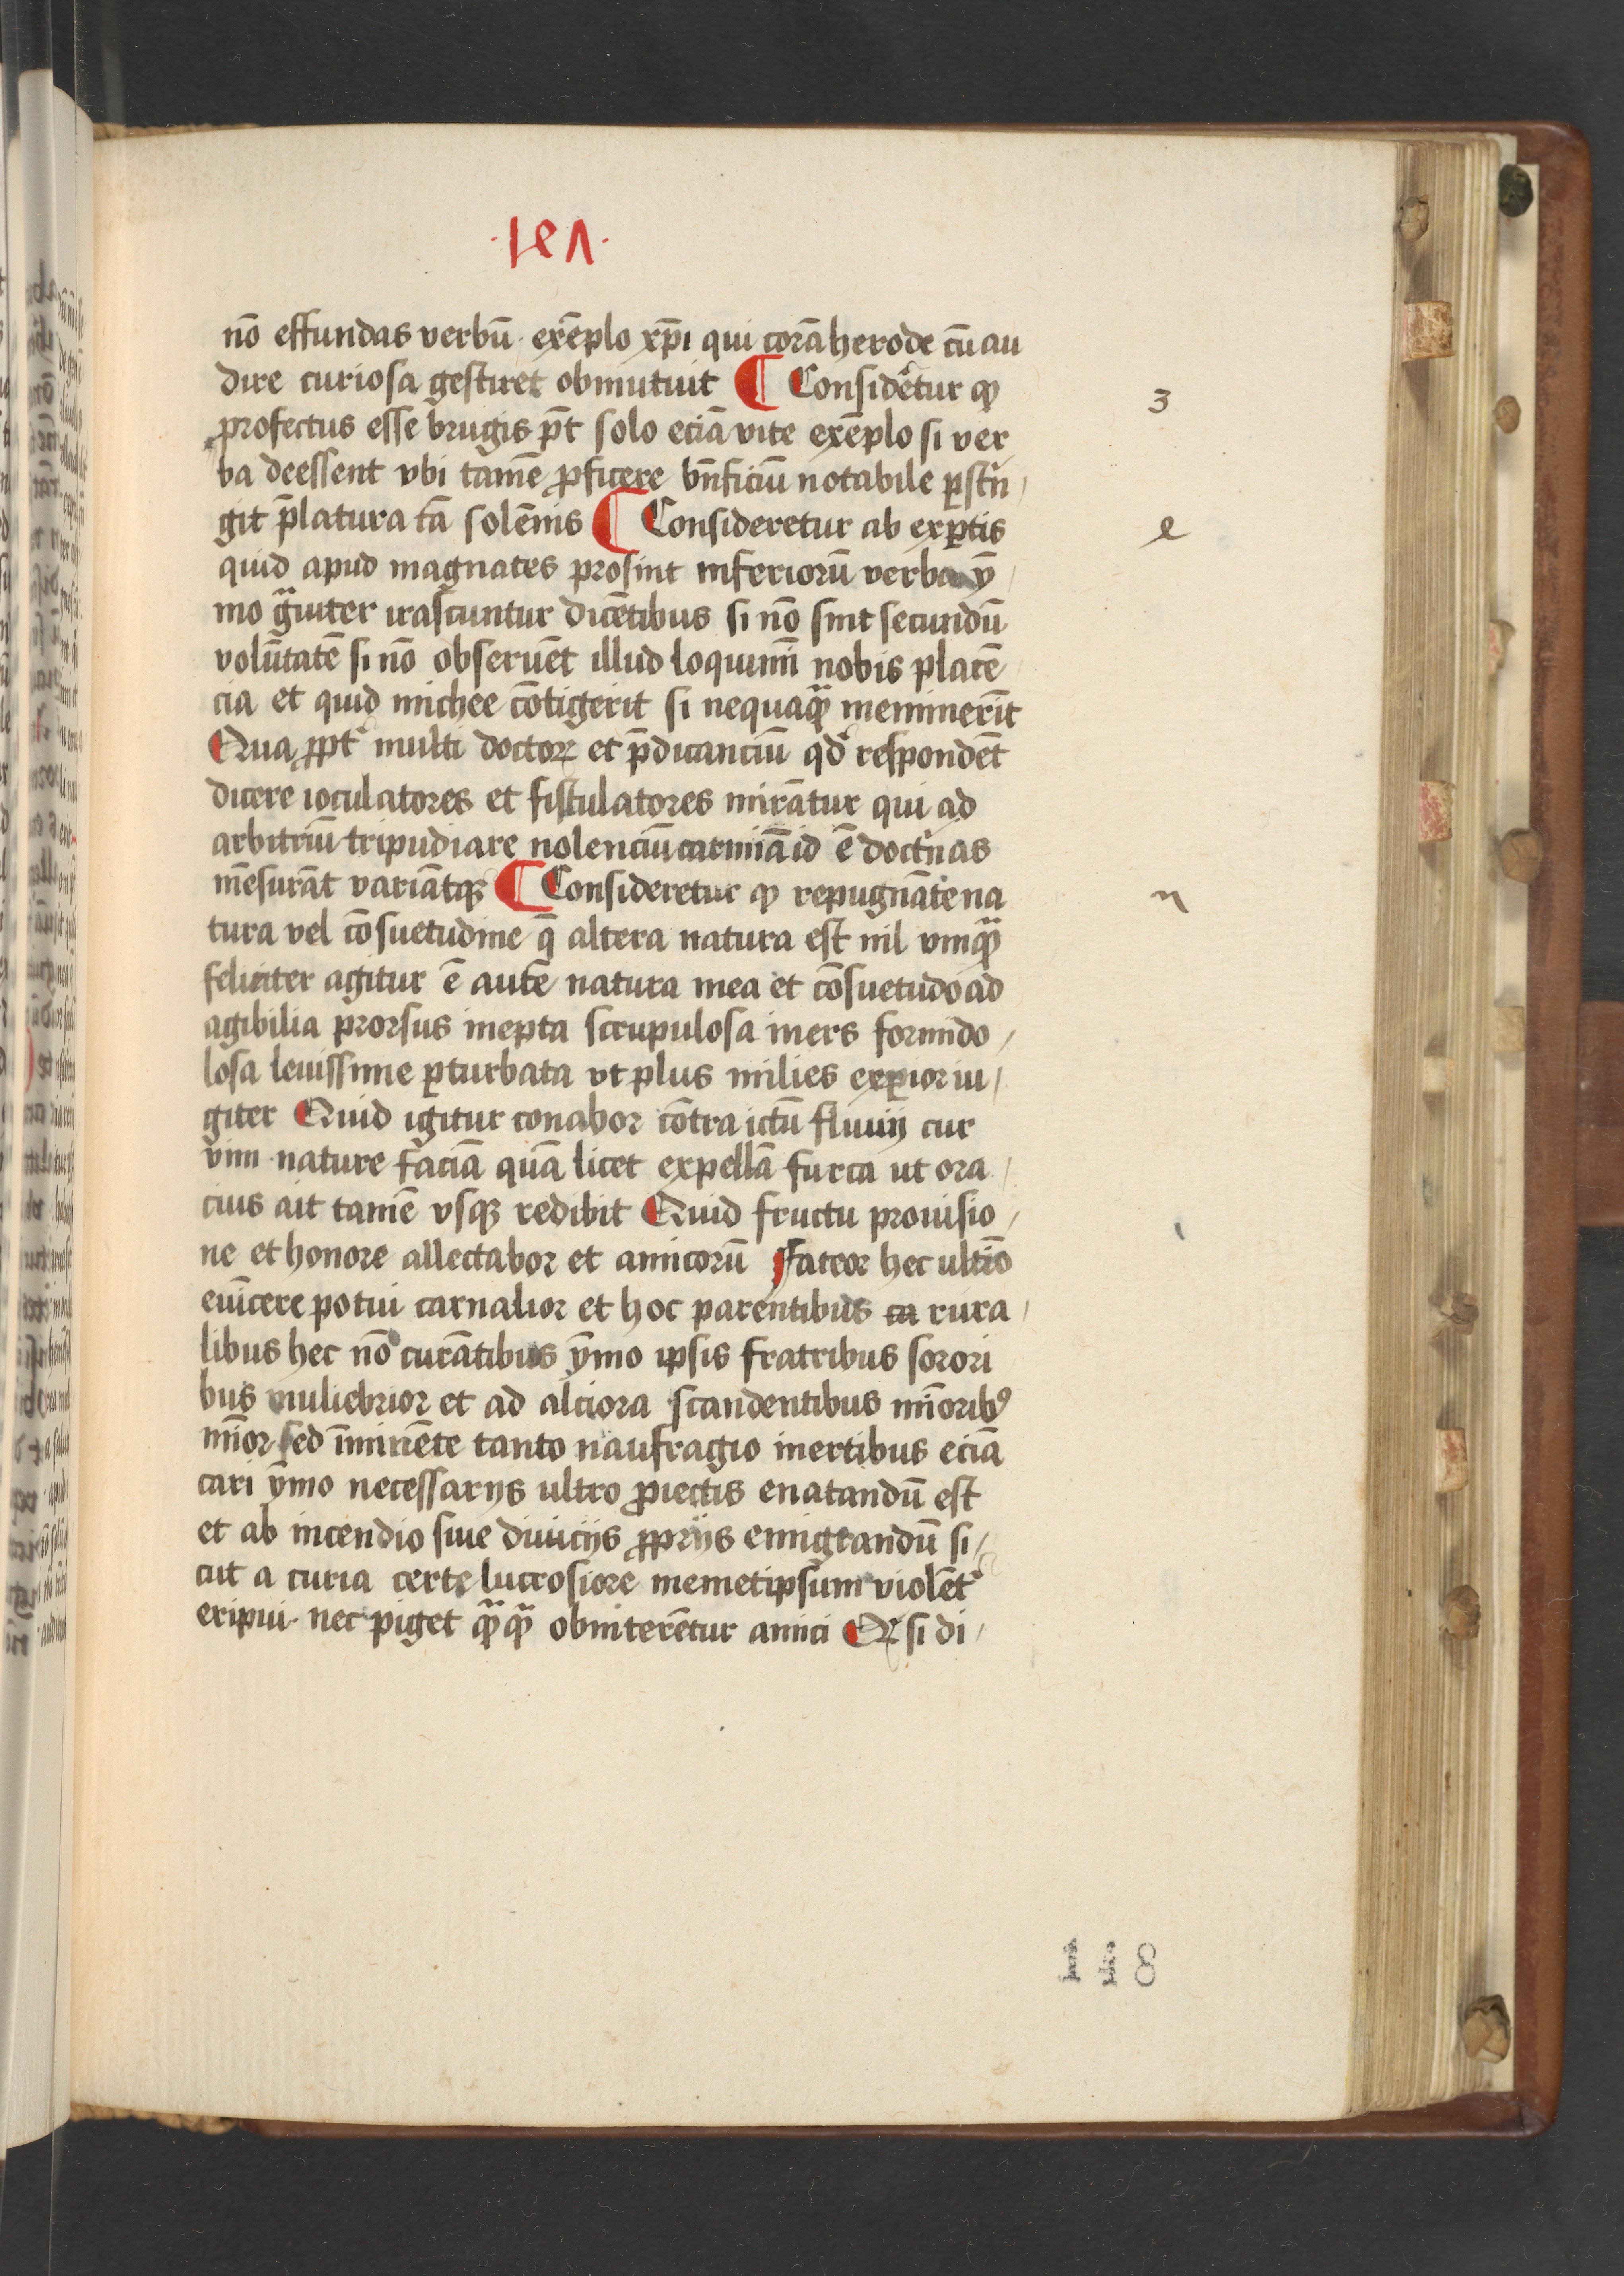 ·1ꝯ7·
nō effundas verbū exēplo xp̄i qui corā herode cū au
dire curiosa gestiret obmutuit ¶ Considẽtur ꝙ
3
profectus esse brugis p̄t solo eciā vite exēplo si ver
ba deessent vbi tamē ꝓficere bn̄ficiū notabile ꝑstrī
git p̄latura tā solēnis ¶ Consideretur ab exꝑtis
e
quid apud magnates prosint inferiorū verba ȳ
mo gͣuiter irascuntur dicētibus si nō sint secundū
volūtatē si nō obseruēt illud loquimī nobis placē
cia et quid michee cōtigerit si nequaqͣꝫ meminerīt
Qua ꝓpt̾ multi doctoꝝ et p̄dicanciū qd̾ respondēt
dicere ioculatores et fistulatores mirātur qui ad
arbitriū tripudiare nolenciū carmīa id ē doctͥnas
mēsurāt variātqꝫ ¶ Consideretur ꝙ repugnāte na
n
tura vel cōsuetudine q̄ altera natura est nil vmqͣꝫ
feliciter agitur ē autē natura mea et cōsuetudo ad
agibilia prorsus inepta scrupulosa iners formido
losa leuissime ꝑturbata vt plus milies exꝑior iu
giter Quid igitur conabor cōtra ictū fluuij cur
vim nature faciā quā licet expellā furca ut ora
cius ait tamē vsqꝫ redibit Quid fructu prouisio
ne et honore allectabor et amicorū Fateor hec ultīo
euīcere potui carnalior et hoc parentibus ca rura
libus hec nō curātibus ȳmo ipsis fratribus sorori
bus muliebrior et ad alciora scandentibus mīoribꝰ
mīor sed īminēte tanto naufragio inertibus eciā
cari ȳmo necessarijs ultro ꝓiectis enatandū est
et ab incendio siue diuicijs ꝓprijs emigrandū si
cut a curia certe lucrosiore memetipsum violēt̾
eripui nec piget qͣꝫqͣꝫ obniterētur amici Qꝛ si di
148